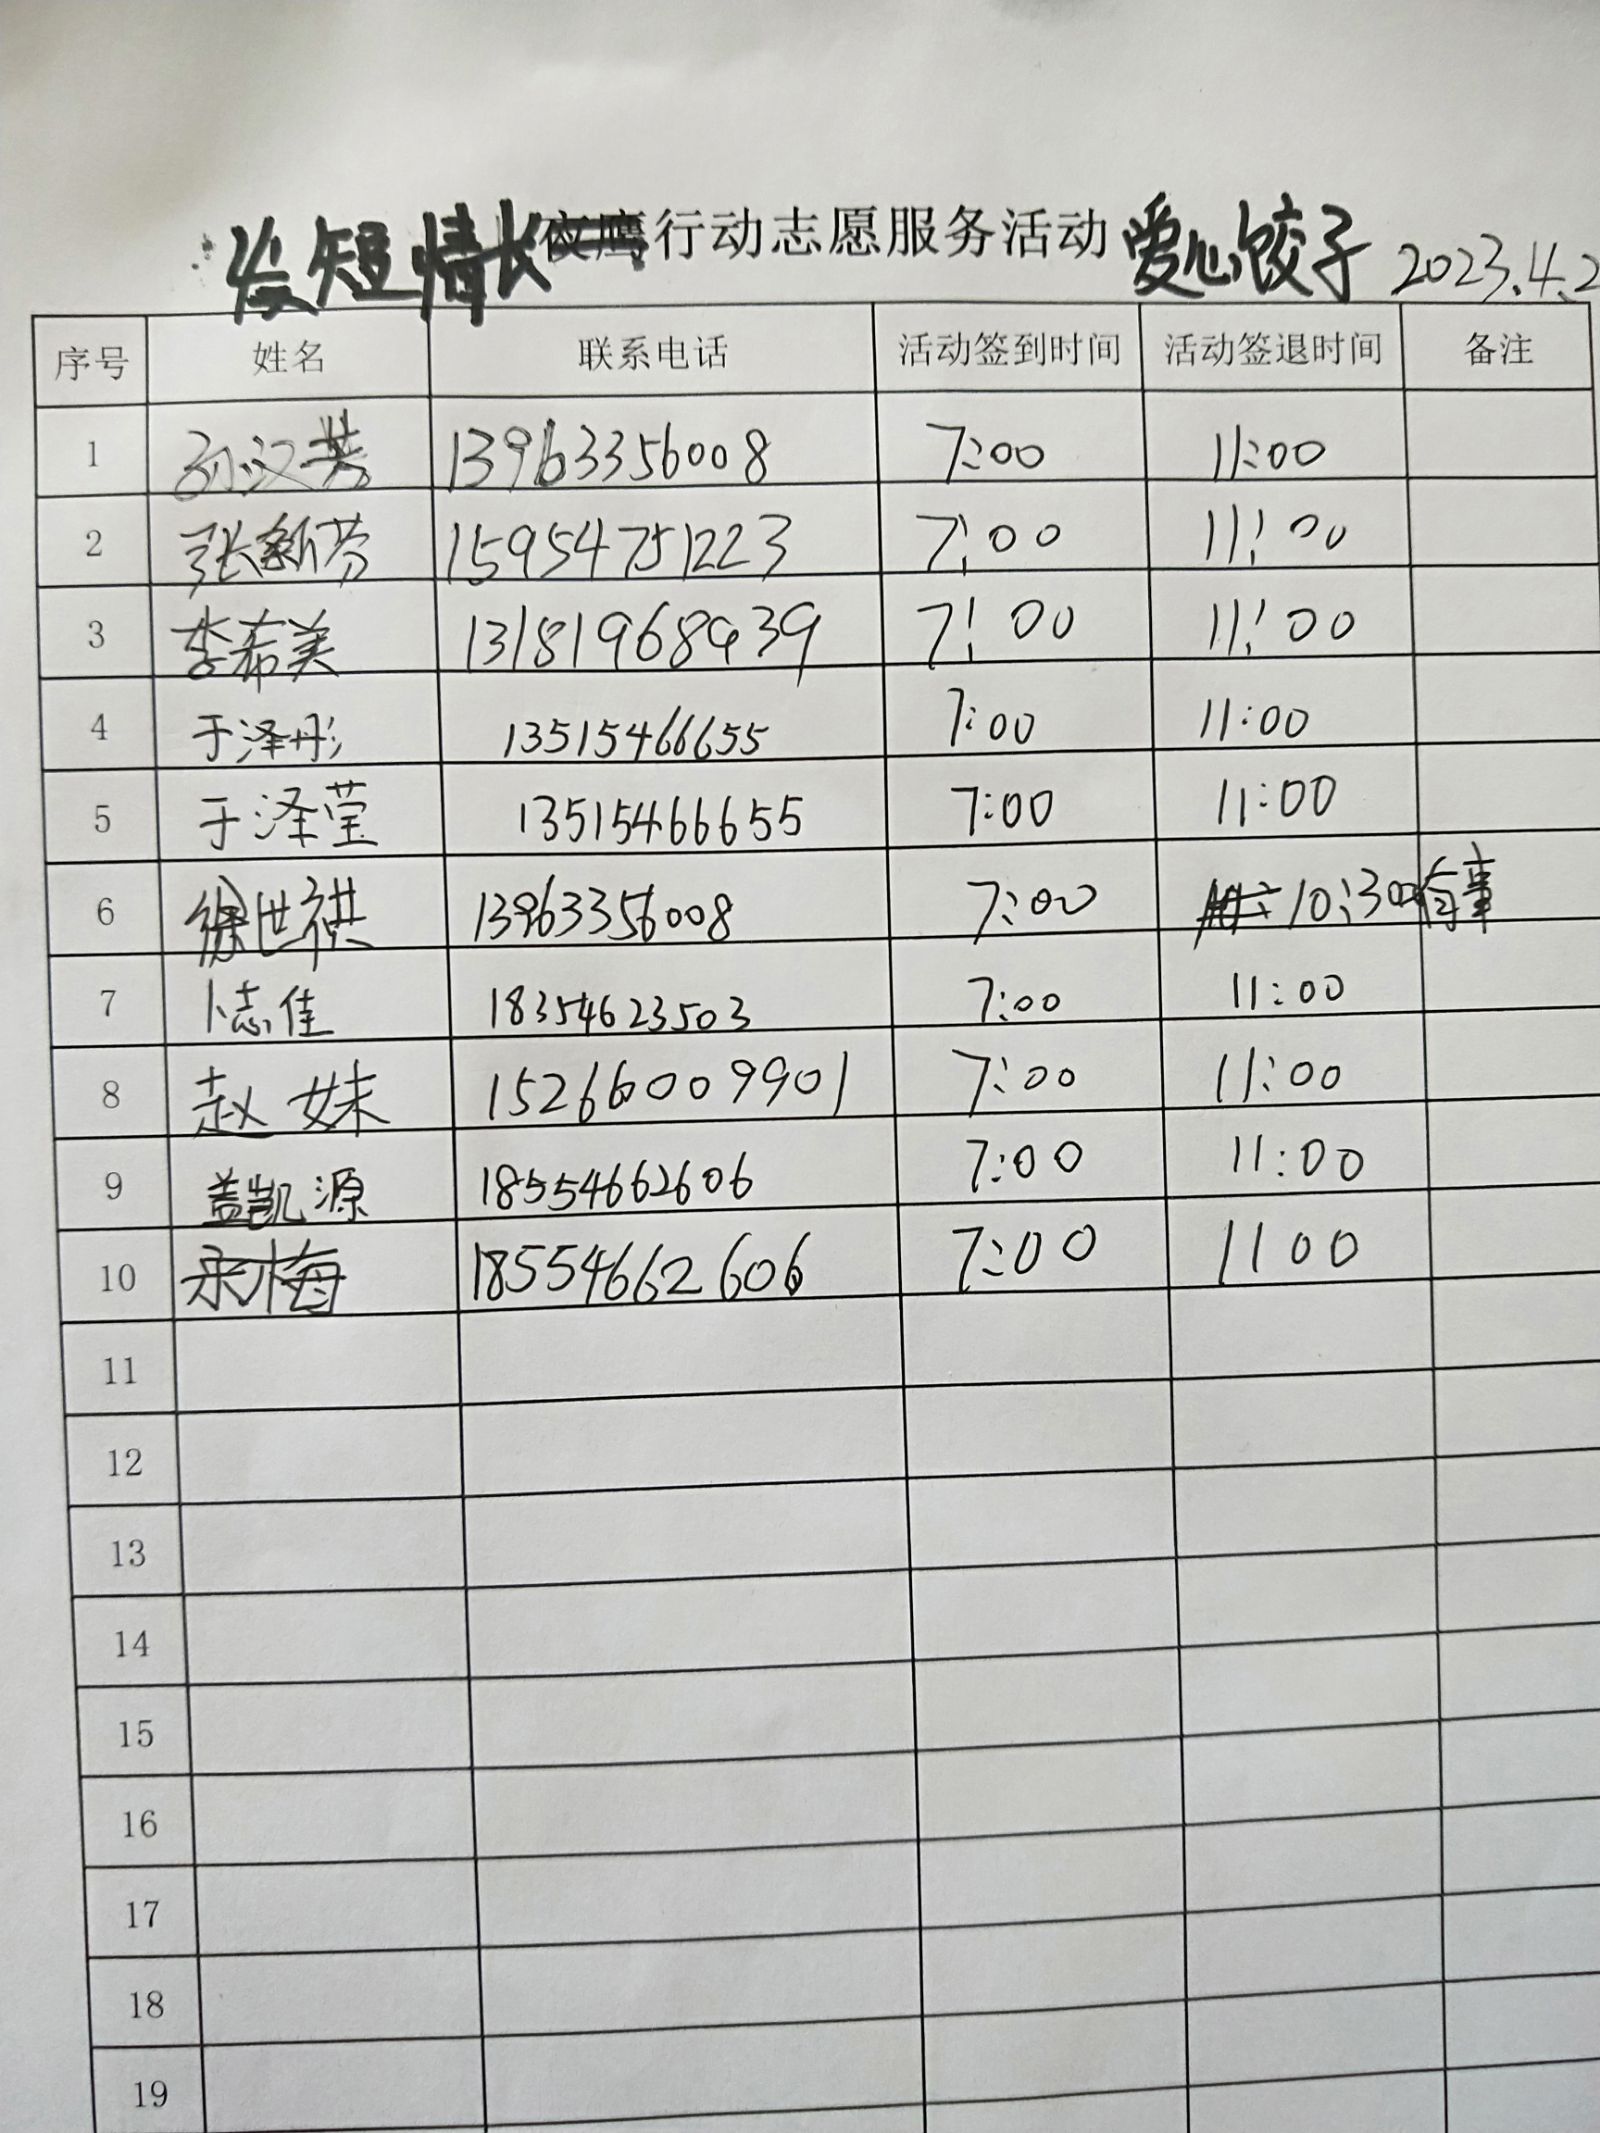 短情长夜鹰行动志愿服务活动 爱心饺子 2023.4.2
序号 姓名 联系电话 活动签到时间 活动签退时间 备注
1 孙汉芳 13963356008 7:00 11:00
2 张新芬 15954751223 7:00 11:00
3 李希美 13181968939 7:00 11:00
4 于泽彤 13515466655 7:00 11:00
5 于泽莹 13515466655 7:00 11:00
6 徐世祺 13963356008 7:00 10:30 有事
7 卜志佳 18354623503 7:00 11:00
8 赵妹 15266009901 7:00 11:00
9 盖凯源 18554662606 7:00 11:00
10 梅 18554662606 7:00 1100
11
12
13
14
15
16
17
18
19